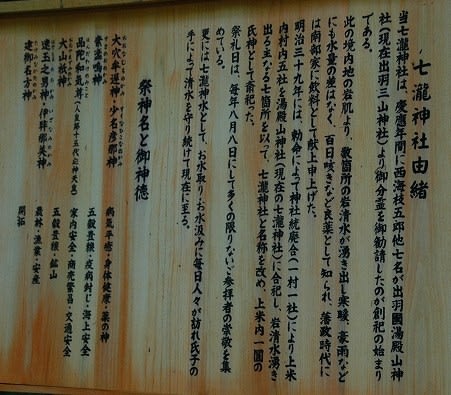 七瀧神社由緒
当七瀧神社は、慶應年間に西海枝五郎他七名が出羽國湯殿山神
社(現在出羽三山神社)より御分霊を御勧請したのが創祀の始まり
である。
此の境内地の岩肌より、数箇所の岩清水が湧き出し寒暖、豪雨など
にも水量の差はなく、百日咳きなど良薬として知られ、藩政時代に
は南部家に飲料として献上申上げた。
明治三十九年には、勅命によって神社統廃合(一村一社)により上米
内村内五社を湯殿山神社(現在の七瀧神社)に合祀し、岩清水湧き
出る主なる七箇所を以って、七瀧神社と名称を改め、上米内一圓の
氏神として斎祀た。
祭礼日は、毎年八月八日にして多くの限りないご参拝者の崇敬を集
めている。
更には七瀧神水として、お水取り・お水汲みに毎日人々が訪れ氏子の
手によって清水を守り続けて現在に至る。
祭神名と御神徳
大穴牟遅神・少名彦那神 病気平癒・身体健康・薬の神
五穀豊穣・疫病封じ・海上安全
品陀和気尊(人皇第十五代応神天皇) 家内安全・商売繁昌・交通安全
大山祇神 五穀豊穣・鉱山
速玉之男神・伊弉那美神 農林・漁業・安産
建御名方神 開拓